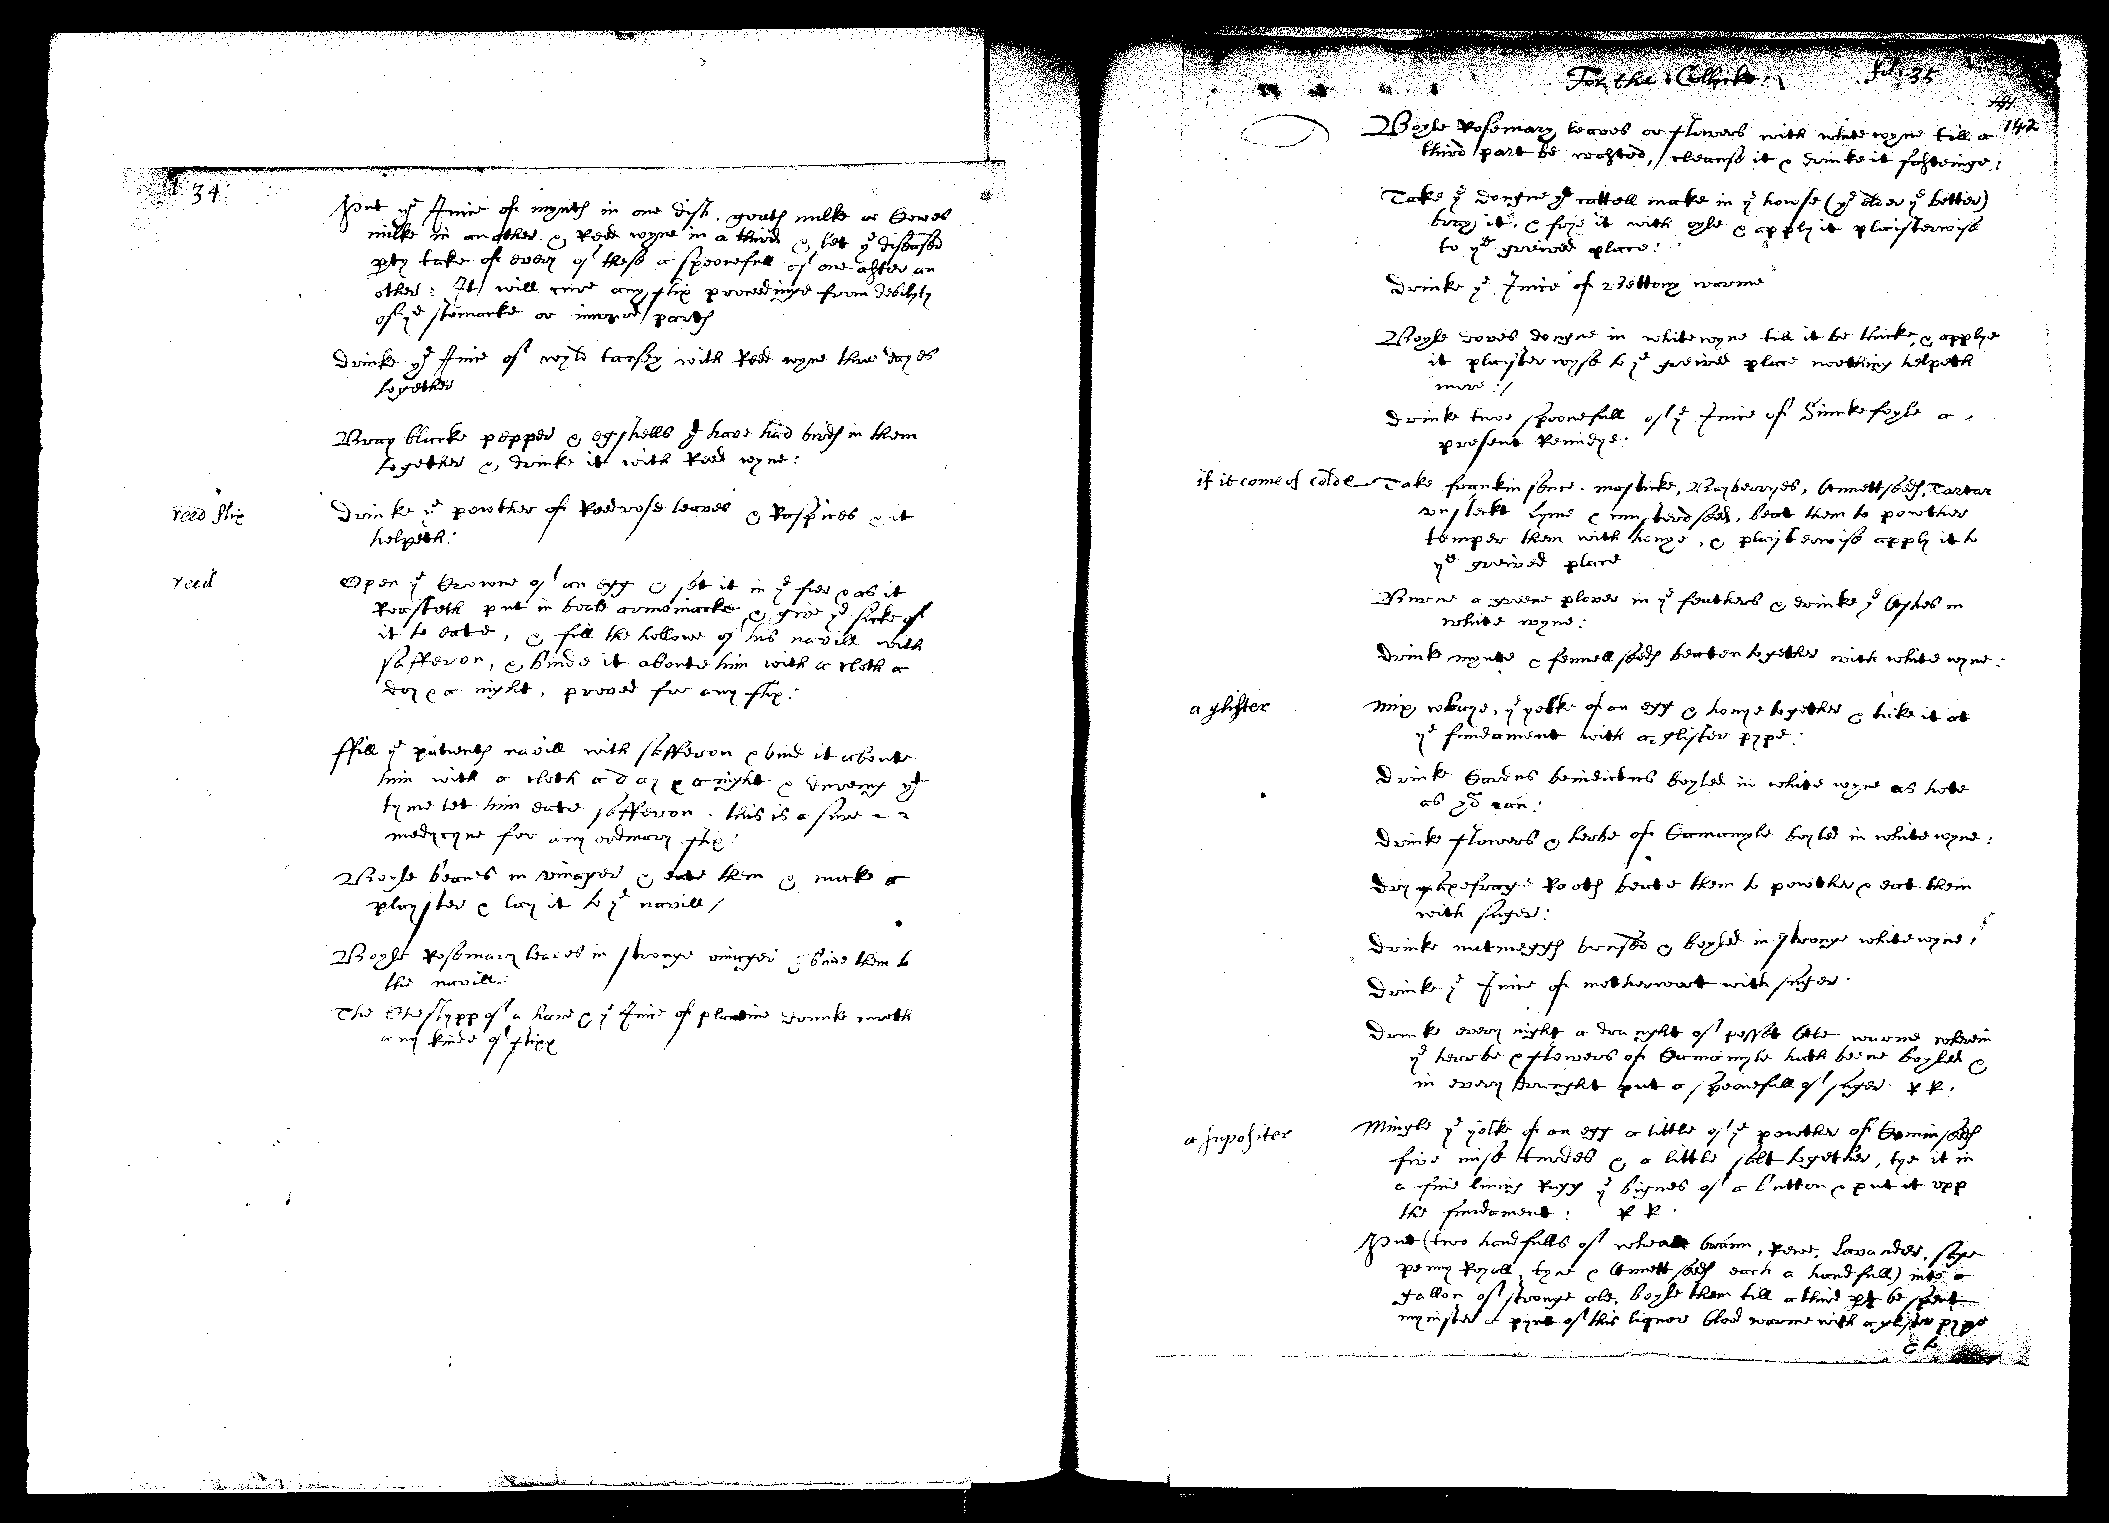 34
Put ye Juice of mynts in one dish, goats milke or Cowes
milke in another & Redd wyne in a third & let ye diseased
pty take of every of these a spoonefull of one after an
other: It will cure any flix proceedinge from debilyty
of ye stomacke or inward parts
drinke ye Juice of wyld tansey with Redd wyne three dayes
together
Bray blacke pepper & egshells yt have had birds in them
together & drinke it with Redd wyne:
reed flix
drinke ye powther of Redrose leaves & Raspices & it
helpeth:
reed
Open ye Crowne of an egg & set it in ye fier & as it
Roasteth put in bole armoniacke & give ye sicke of
it to eate, & fill the hollowe of his navill with
safferon, & binde it aboute him with a cloth a
day & a night, proved for any flix:
ffill ye patients navill with safferon & bind it aboute
him with a cloth a day & a night & dureing yt
tyme let him eate safferon. this is a sure
medycyne for any ordinary flix:
Boyle beanes in vinager & eate them & make a
playster & lay it to ye navill /
Boyle Rosemary leaves in stronge vinager & bind them to
the navill:
The Cheslypp of a hare & ye Juice of plantine drunke
any kinde of flixx
For the Collicke:
fol: 35
141
142
Boyle Rosemary leaves or flowers with white wyne till a
third part be wasted, / cleanse it & drinke it fasteinge:
Take ye dongue yt cattell make in ye house (ye older ye better)
bray it, & frye it with oyle & apply it plaisterwise
to ye greived place:
drinke ye Juice of Bettony warme
Boyle doves dongue in white wyne till it be thicke, & applye
it plaister wyse to ye greived place noething helpeth
more: /
drinke two spoonefull of ye Juice of Sinckefoyle a
present Remidye:
if it come of colde
Take frankinsence, masticke, Bayberryes, Annettseeds, Tartar
unsleckt Lyme & musterdseed, beat them to powther
temper them with honye, & playsterwise apply it to
ye greived place
Burne a greene plover in ye feathers & drinke ye Ashes in
white wyne:
drinke mynte & fennell seeds beaten together with white wyne:
a glister
Mix whaye, ye yolke of an egg & honye together & take it at
ye fundament with a glister pype:
drinke Cardus benidictus boyled in white wyne as hote
as you can:
drinke flowers & herbe of Camomyle boyled in white wyne:
dry saxefrage Roots beate them to powther & eat them
with suger:
drinke nutmeggs brused & boyled in stronge white wyne:
drinke ye Juice of motherwort with suger
drinke every night a draught of possit Ale warme wherein
ye hearbe & flowers of Camomyle hath beene boyled &
in every draught put a spoonefull of suger
a supositer
Mingle ye yolke of an egg a little of ye powther of Cominseeds
five mise turdes & a little salt together, tye it in
a fine lining Ragg ye bignes of a button & put it upp
the fundament:
Put (two handfulls of wheate brann, Rewe, Lavander, sage
penny Royall, tyme & Annett seeds each a handfull) into a
gallon of stronge ale, boyle them till a third pt be spent
mynister a pynt of this liquor blod warme with a glister pype